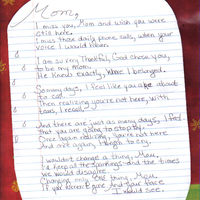 Mom,
I miss you, Mom and wish you were
still here.
I miss those daily phone calls, when your
voice I would hear.
I am so very thankful, God chose you,
to be my mom.
He knew exactly, where I belonged.
So many days, I feel like you are about
to call.
Then realizing you're not here, with
tears, I
And there are just as many days, I feel
that you are going to stop by.
Once again realizing, you're not here
And once again, I begin to cry.
I wouldn't change a thing, Mom,
I'd keep all the spankings and the times
we would disagree.
Changing only one thing, Mom,
if you weren't gone. And your face
I would see.